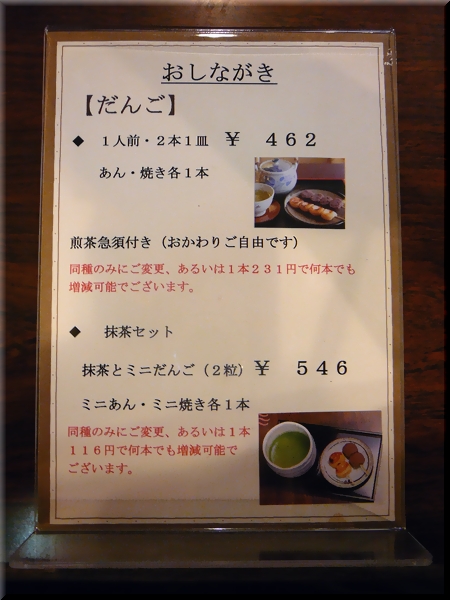 おしながき
【だんご】
◆ 1人前・2本1皿 ¥ 462
あん・焼き各1本
煎茶急須付き（おかわりご自由です）
同種のみにご変更、あるいは1本231円で何本でも
増減可能でございます。
◆ 抹茶セット
抹茶とミニだんご（2粒）¥ 546
ミニあん・ミニ焼き各1本
同種のみにご変更、あるいは1本
116円で何本でも増減可能で
ございます。